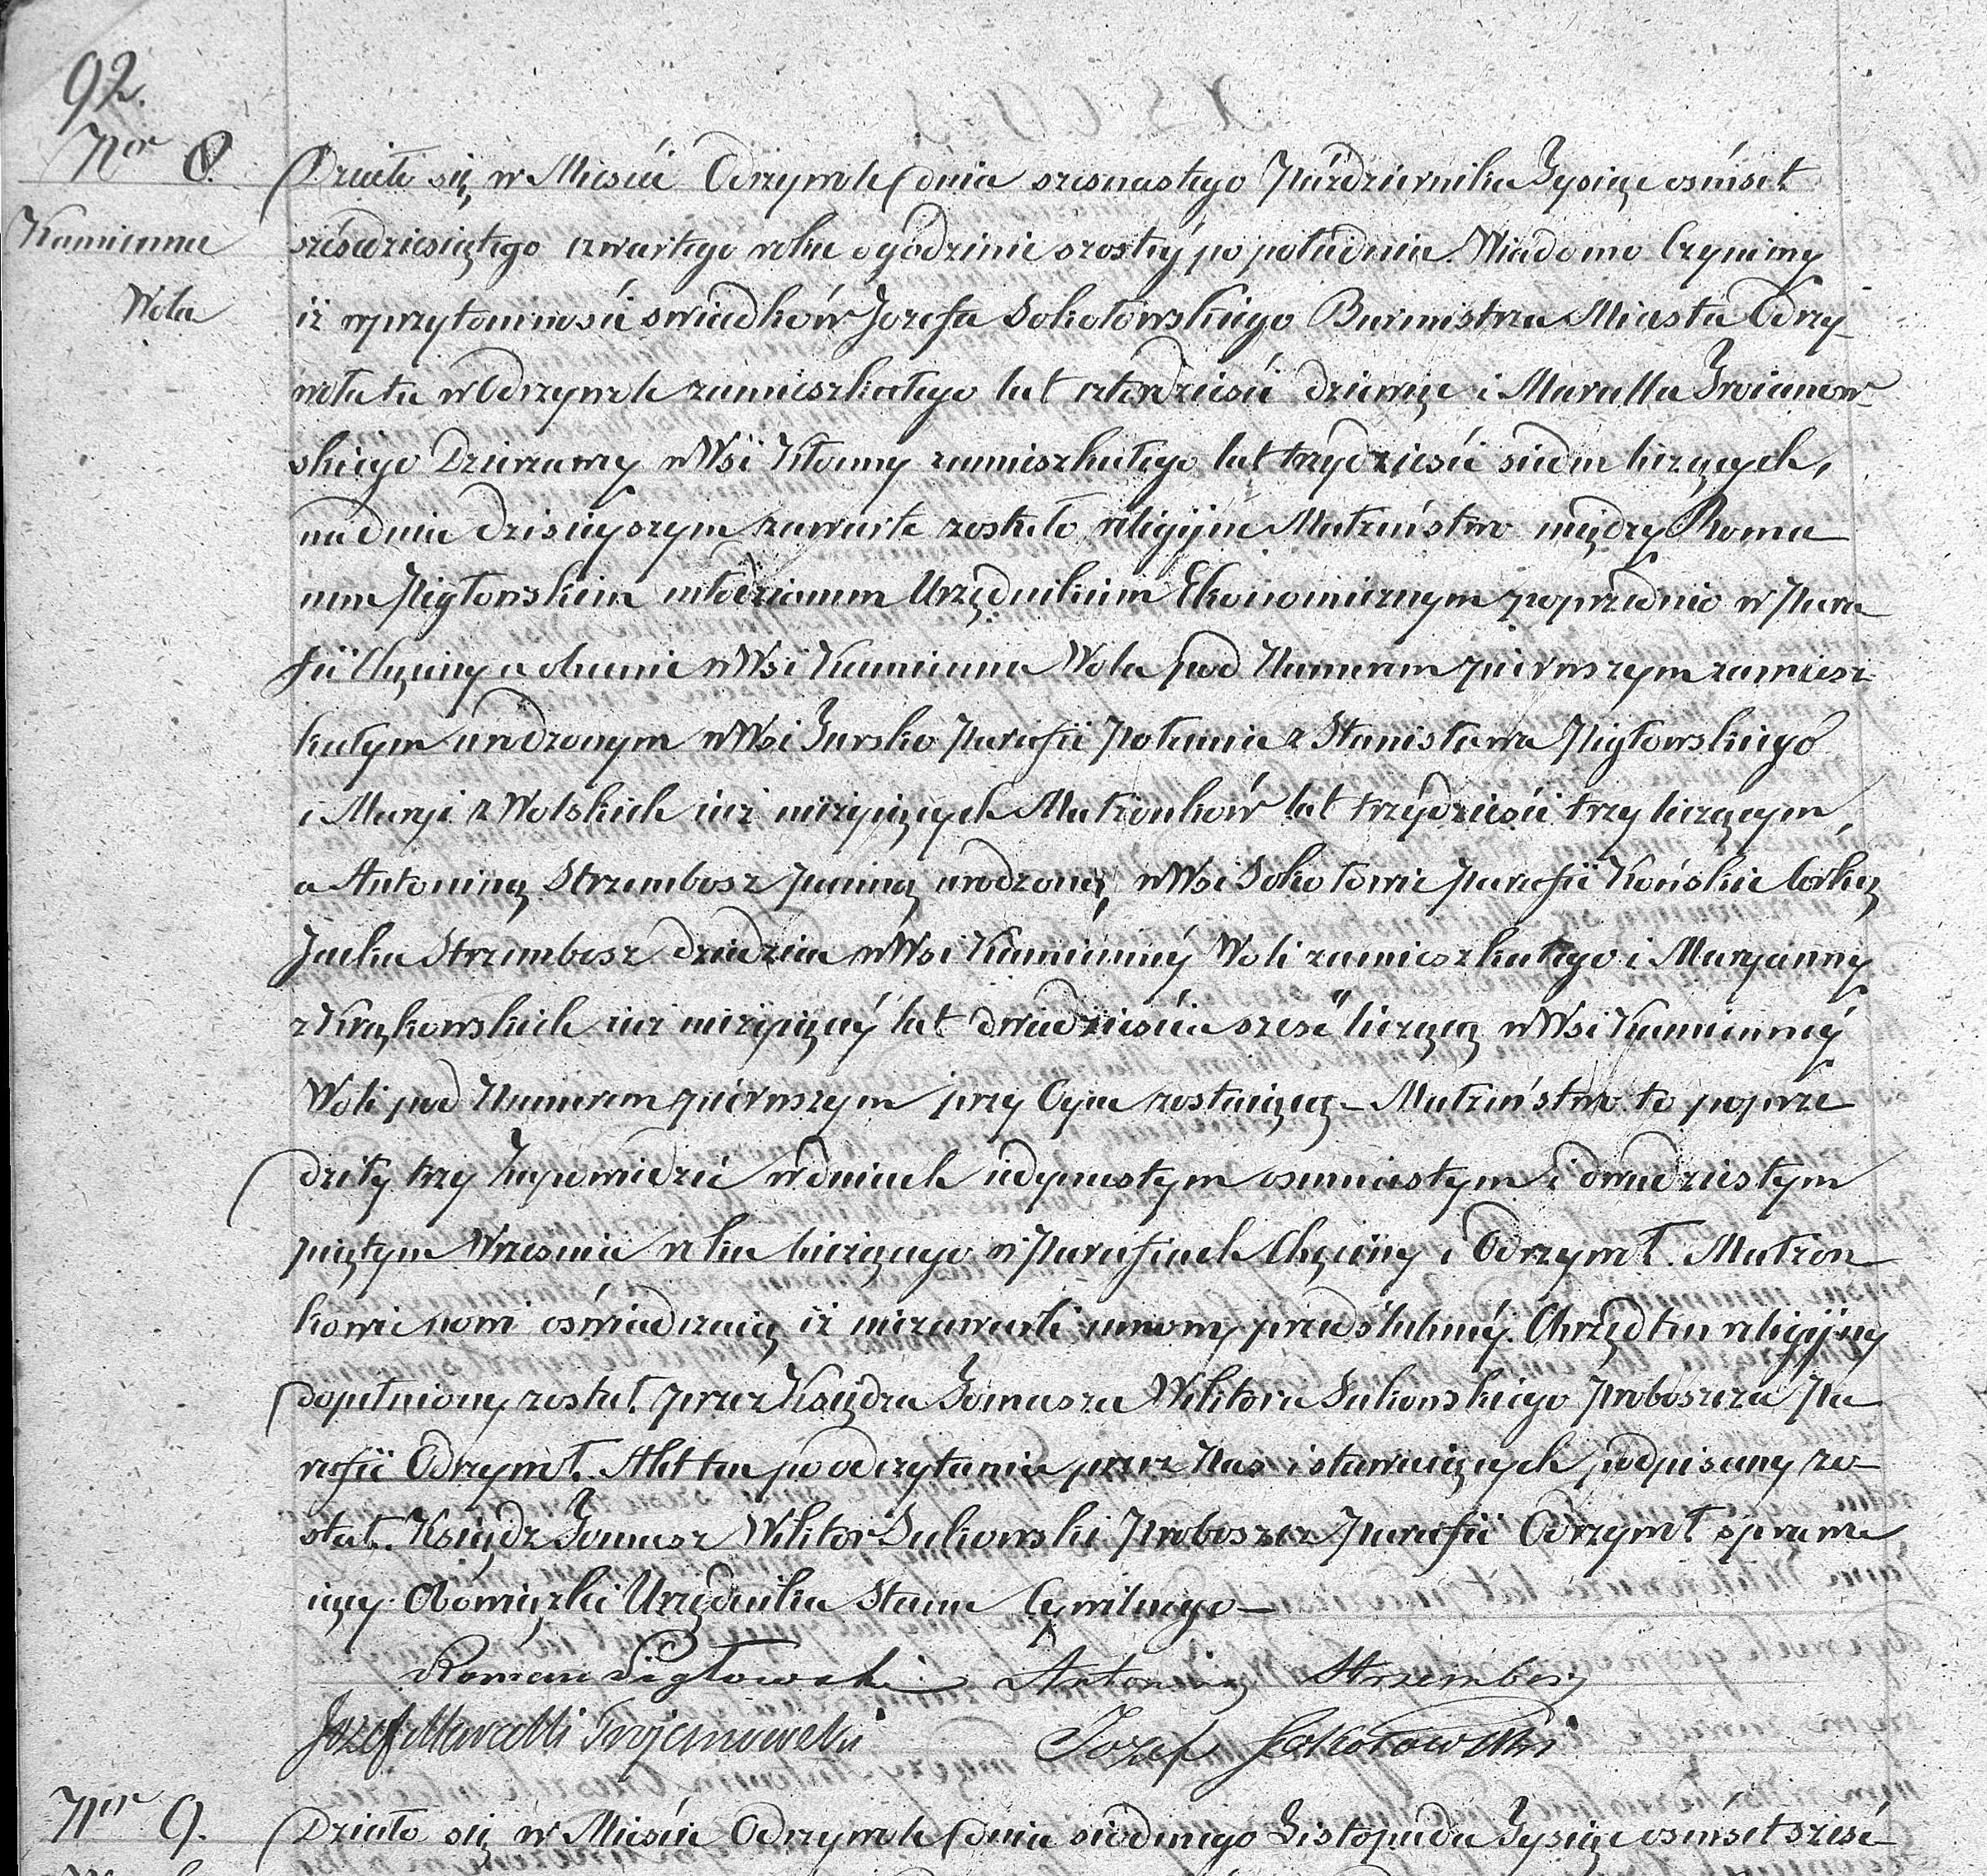 92.
Nor 8.
Kamienna
Wola
Działo się w Mieście Odrzywole dnia szesnastego Października Tysiąc ośmset
sześdziesiątego czwartego roku o godzinie szostéj po południu. Wiadomo Czynimy
iż w przytomności swiadków Jozefa Sokołowskiego Burmistrza Miasta Odrzy-
wołu tu w Odrzywole zamieszkałego lat czterdzieści dziewięć i Marcella Troianow-
skiego Dzierzawcy w Wsi Kłonny zamieszkałego lat trzydzieści siedm liczących,
na dniu dzisieyszym zawarte zostało religijne Małżeństwo między Roma
nem Pigłowskim młodzianem Urzędnikiem Ekonomicznym poprzednio w Para
fii Chęciny a obecnie w Wsi Kamienna Wola pod Numerem pierwszym zamiesz-
kałym urodzonym w Wsi Gursko Parafii Potannie z Stanisława Pigłowskiego
i Maryi z Wolskich już nieżyjących Małżonków lat trzydzieści trzy liczącym,
a Antoniną Strzembosz panną urodzoną w Wsi Sokołowie parafii Końskie Córką
Jacka Strzembosz dziedzica w Wsi Kamiennéj Woli zamieszkałego i Maryanny
z Krąkowskich już nieżyjącéj lat dwadzieścia sześć liczącą w Wsi Kamiennéj
Woli pod Numerem pierwszym przy Ojcu zostającą – Małżeństwo to poprze
dziły trzy Zapowiedzie w dniach jedynastym osmnastym i dwudziestym
piątym Wrzesnia roku bieżącego w Parafiach Chęciny i Odrzywół. Małżon
kowie nowi oświadczają iż niezawarli umowy przedślubnéj. Obrzęd ten religijny
dopełniony został przez Księdza Tomasza Wiktora Sulkowskiego Proboszcza Pa
rafii Odrzywół. Akt ten po odczytaniu przez Nas i stawaiących podpisany zo-
stał. Ksiądz Tomasz Wiktor Sulkowski Proboszcz Parafii Odrzywół sprawu
iący Obowiązki Urzędnika Stanu Cywilnego –
Roman Pigłowski Antonina Strzembosz
Jozef Marcelli Trojanowski Jozef Sokołowski
Nor 9.
Działo się w Mieście Odrzywole dnia siodmego Listopada Tysiąc ośmset sześć-